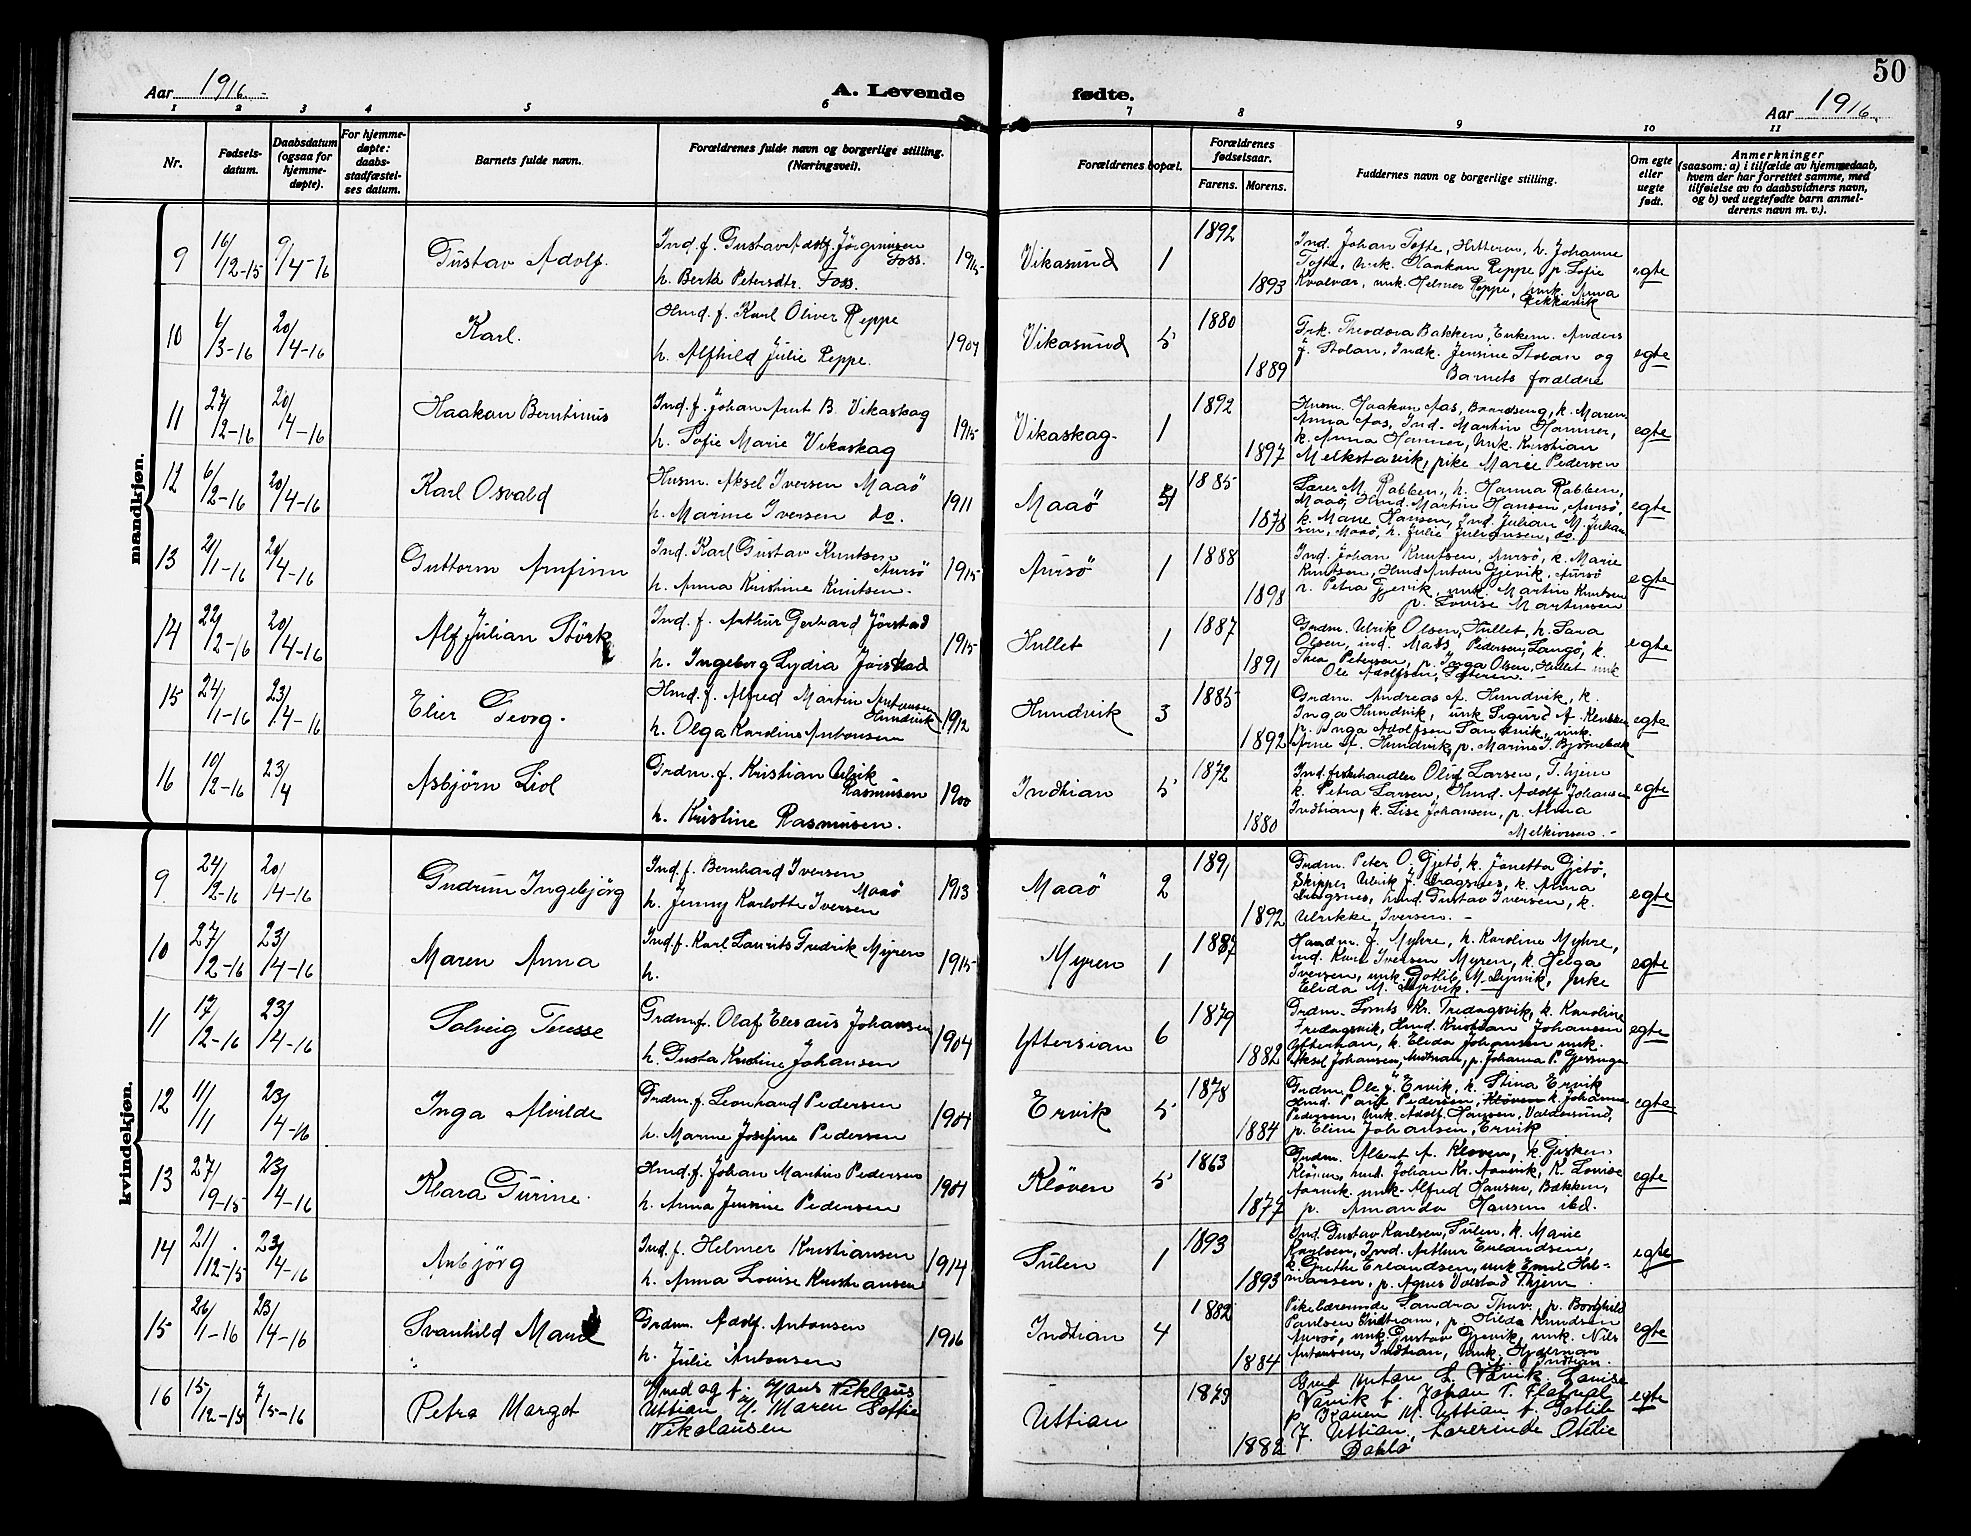 50
Aar 1916.-
A. Levende
fødte.
Aar 1916
1 2 3 4 5 6 7 8 9 10 11
Nr.
Fødsels-
datum.
Daabsdatum
(ogsaa for
hjemme-
døpte).
For hjemme-
døpte:
daabs-
stadfæstel-
ses datum.
Barnets fulde navn.
Forældrenes fulde navn og borgerlige stilling.
(Næringsvei).
Forældrenes bopæl.
Forældrenes
fødselsaar.
Farens. Morens.
Faddernes navn og borgerlige stilling.
Om egte
eller
uegte
født.
Anmerkninger
(saasom: a) i tilfælde av hjemmedaab,
hvem der har forrettet samme, med
tilføielse av to daabsvidners navn,
og b) ved uegtefødte barn anmel-
derens navn m. v.).
mandkjøn.
9 16/12-15 9/4-16 Gustav Adolf.
Ind. f. Gustav Adolf Jörginusen Foss.
h. Berta Petersdtr. Foss. 1915
Vikasund 1 1892 1893
Ind. Johan Tofte, Hitteren, h. Johanne
Tofte, unk. Haakon Reppe p. Sofie
Kvalvær, unk. Helmer Reppe, unk. Anna
egte
10 6/3-16 20/4-16 Karl.
Hmd. f. Karl Oliver Reppe
h. Alfhild Julie Reppe.
Vikasund 5 1880 1889
Frk. Theodora Bakken, Enkem. Anders
J. Stolan, Indk. Jensine Stolan og
Barnets forældre
egte
11 27/12-16 20/4-16 Haakon Berntinus
Ind. f. Johan Arnt B. Vikaskag
h. Sofie Marie Vikaskag 1915
Vikaskag. 1 1892 1897
Husm. Haakon Aas, k. Maren
Anna Aas, Ind. Martin Hammer,
k. Anna Hammer, unk. Kristian
Melkstavik, pike Marie Pedersen
egte
12 6/12-16 20/4-16 Karl Osvald
Husm. Aksel Iversen Maaö
h. Marine Iversen do. 1911
Maaö 1885 1878
Lærer M. Rabben, h. Hanna Rabben,
Maaö, Hmd. Martin Hansen, Aursö,
k. Marie Hansen, Ind. Julian M. Julian
sen, Maaö, h. Julie Juliansen, do.
egte
13 21/1-16 20/4-16 Guttorm Arnfinn
Ind. Karl Gustav Knutsen Aursö
h. Anna Kristine Knutsen. 1915
Aursö 1 1888 1898
Ind. Johan Knutsen, Aursö, k. Marie
Knutsen, Hmd Anton Gjevik, Aursö
h. Petra Gjevik, unk. Martin Knutsen
p. Lovise Martinsen
egte
14 22/12-16 20/4-16 Alf Julian Störk
Ind. f. Arthur Gerhard Jörstad
h. Ingeborg Lydia Jörstad 1915
Hullet 1 1887 1891
Grdm. Ulrik Olsen, Hullet, h. Sara
Olsen, ind. Mats Pedersen, Langö, k.
Thea Petersen, p. Inga Olsen, Hullet unk
Ole Adolfsen,
egte
15 24/1-16 23/4-16 Elier Georg.
Hmd. f. Alfred Martin Antonsen Hundvik
h. Olga Karoline Antonsen 1912
Hundvik 3 1885 1892
Grdm. Andreas A. Hundvik, k.
Inga Hundvik, unk Sigurd A.
p. Inga Adolfsen Sandvik, unk.
Arne A. Hundvik, p. Marine J.
egte
16 10/12-16 23/4 Asbjørn Liol
Grdm. f. Kristian Ulrik Rasmusen
h. Kristine Rasmusen. 1900
Indtian 5 1872 1880
Ind. fiskehandler Oluf Larsen, T.hjem
k. Petra Larsen, Hmd. Adolf Johansen
Indtian, k. Lise Johansen, p. Alma
egte
kvindekjøn.
9 24/12-16 20/4-16 Gudrun Ingebjörg
Ind. f. Bernhard Iversen Maaö
h. Jenny Karlotte Iversen 1913
Maaö 2 1891 1892
Grdm. Peter O. Gjetö, k. Jonetta Gjetö,
Skipper Ulrik J. Dragsnes, k. Anna
Dragsnes, hmd. Gustav Iversen, k.
Ulrikke Iversen. -
egte
10 27/12-16 23/4-16 Maren Anna
Ind. f. Karl Laurits Fredrik Myren
h. 1915
Myren 1 1887
Handm. J. Myhre, h. Karoline Myhre,
ind. Karl Iversen Myren, k. Helga
Iversen, unk. Gotlib M. pike
Elida M.
egte
11 17/12-16 23/4-16 Solveig Teresse
Grdm f. Olaf Eleseus Johansen
h. Gusta Kristine Johansen 1904
Yttersian 6 1879 1882
Grdm. Lorents Kr. Fredagsvik, k. Karoline
Fredagsvik, Hmd. Kristian Johansen
k. Elida Johansen unk.
Aksel Johansen, p. Johanna P.
egte
12 11/11 23/4-16 Inga Alvilde
Grdm. f. Leonhard Pedersen
h. Marine Josefine Pedersen
Ervik 5 1878 1884
Grdm. Ole J. Ervik, k. Stina Ervik
Hmd. Paul Pedersen, Kløven k. Johanna
Pedersen, unk. Adolf Hansen, Valdersund,
p. Eline Johansen, Ervik
egte
13 27/9-15 23/4-16 Klara Gurine.
Hmd. f. Johan Martin Pedersen
h. Anna Jensine Pedersen
Kløven 5 1863 1877
Grdm. Albert A. Kløven, k. Gisken
Kløven, hmd. Johan Kr. Aarvik, k. Lovise
Aarvik. unk. Alfred Hansen, Bækken,
p. Amanda Hansen ibd.
egte
14 21/12-15 23/4-16 Anbjörg
Ind. f. Helmer Kristiansen
h. Anna Lovise Kristiansen 1914
Sulen 1 1893 1893
Ind. Gustav Karlsen, Sulen, k. Marie
Karlsen, Ind. Arthur Erlandsen,
k. Grethe Erlandsen, unk Emil Hel-
mersen, p. Agnes Volstad Thjem.
egte
15 26/1-16 23/4-16 Svanhild Marie
Grdm. Adolf. Antonsen
h. Julie Antonsen 1906
Indtian 4 1882 1884
Pikelærerinde Sandra p. Borghild
Paulsen Indtian, p. Hilda Knudsen
Aursö, unk. Gustav Gjevik, unk. Nils
Antonsen, Indtian, unk.
Indtian.
egte
16 15/12-15 7/5-16 Petra Margot
Ind og f. Hans Nikolaus
Uttian H. Maren Sofie
Nikolausen
Uttian 1873 1882
Grd Anton L. Vavik. Lovise
Vavik f. Johan T.
p. Karen M. Uttian f. Gotlib
J. Uttian, Lærerinde Otelie
Dahlö
egte